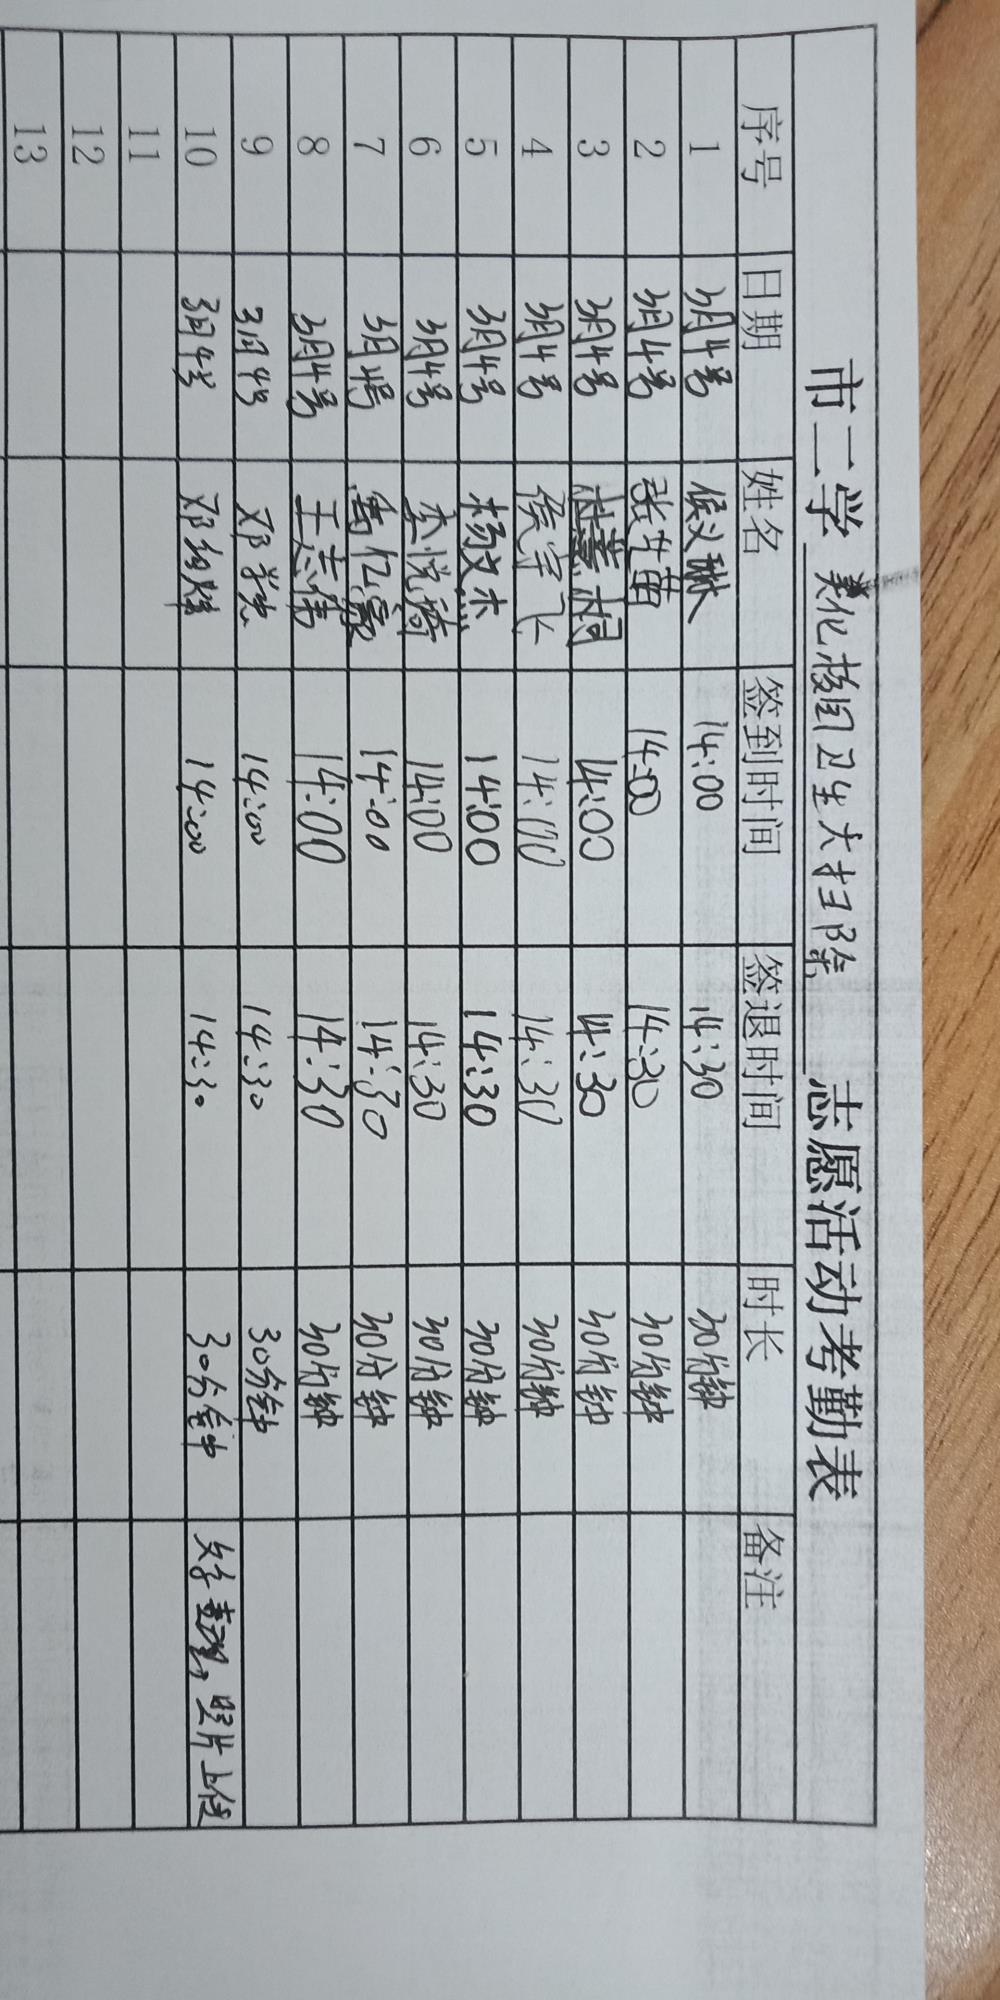 市二学 美化校园卫生大扫除 志愿活动考勤表
序号 日期 姓名 签到时间 签退时间 时长 备注
1 3月4号 侯义琳 14:00 14:30 30分钟
2 3月4号 张艺苗 14:00 14:30 30分钟
3 3月4号 杜慧桐 14:00 14:30 30分钟
4 3月4号 侯宇飞 14:00 14:30 30分钟
5 3月4号 杨文杰 14:00 14:30 30分钟
6 3月4号 李悦琦 14:00 14:30 30分钟
7 3月4号 14:00 14:30 30分钟
8 3月4号 王志伟 14:00 14:30 30分钟
9 3月4号 14:00 14:30 30分钟
10 3月4号 14:00 14:30 30分钟 文字整理,照片上传
11
12
13